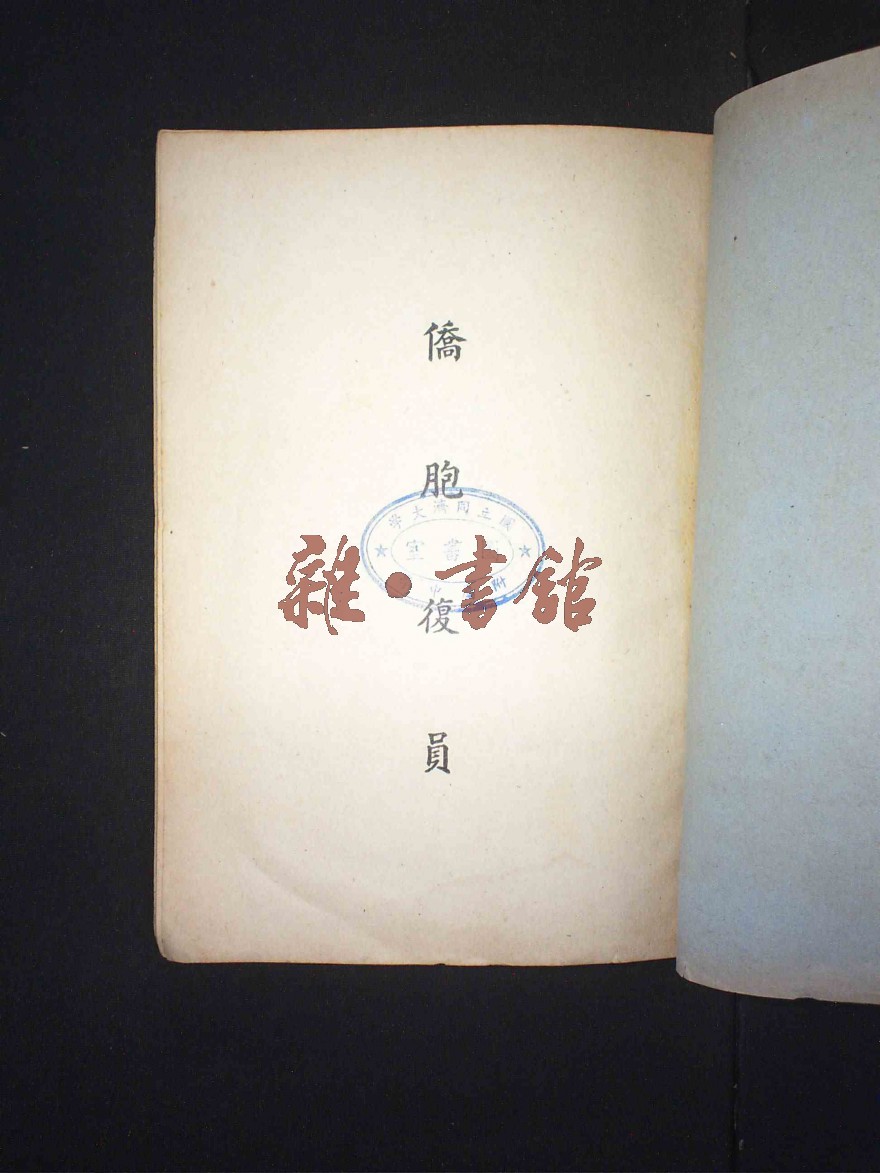 僑胞復員
國立同濟大學
書室
附中
雜·書館